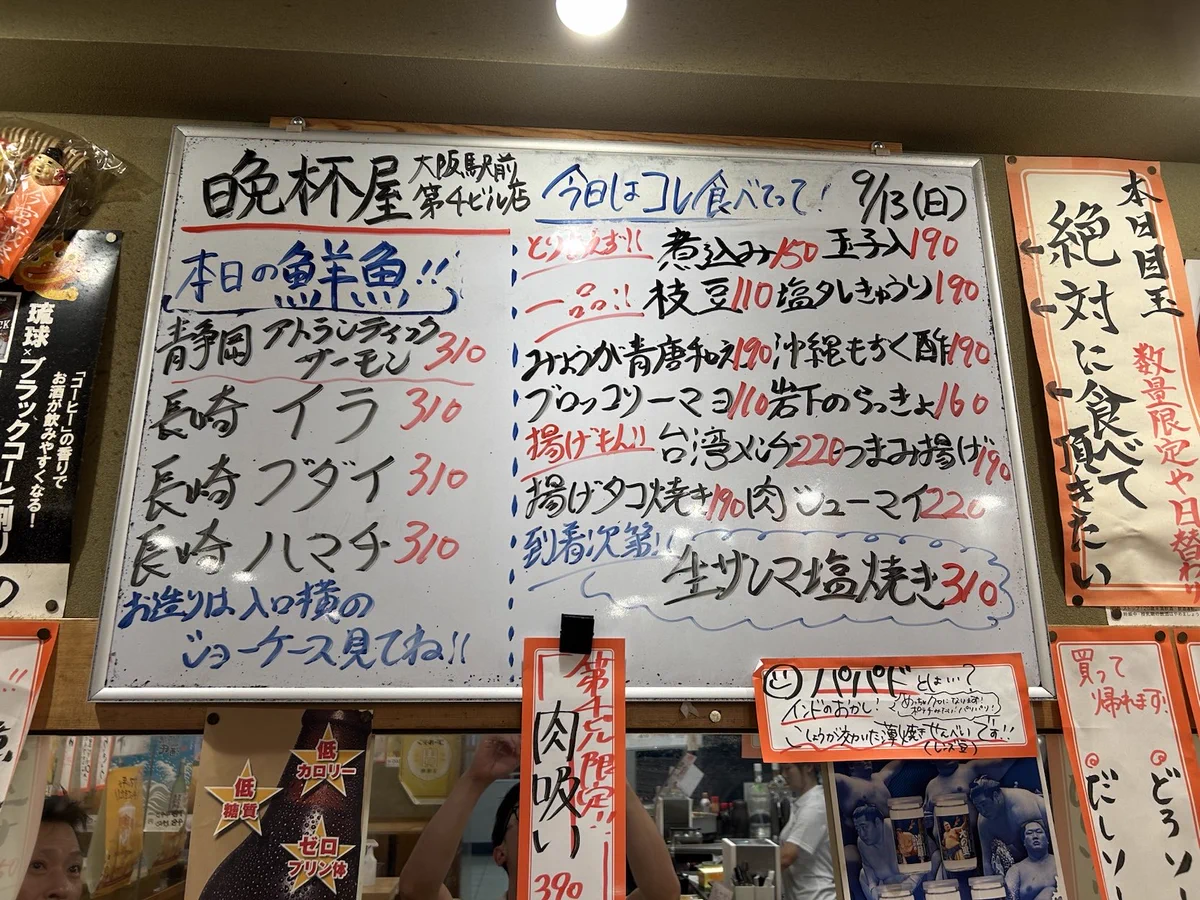 晩杯屋 大阪駅前
第4ビル店
今日はコレ食べてって!
9/13(日)
本日の鮮魚!!
青静岡 アトランティック
サーモン 310
長崎 イラ 310
長崎 ブダイ 310
長崎 ハマチ 310
お造りは入口横の
ショーケース見てね!!
とりあえず!! 煮込み150 玉子入190
一品!! 枝豆110 塩タレきゅうり190
みょうが青唐和え190 沖縄もずく酢190
ブロッコリーマヨ110 岩下のらっきょ160
揚げもん!! 台湾メンチ220 つまみ揚げ190
揚げタコ焼き190 肉シューマイ220
到着次第!!
生サンマ塩焼き310
本日目玉
数量限定や日替わり
絶対に食べて
頂きたい
「コーヒー」の香りで
お酒が飲みやすくなる!
琉球×ブラックコーヒー割り
の
第4ビル限定!!
肉吸い
390
パパドとはぃ?
インドのおかし!
こしょうが効いた薄焼きせんべいです!!
(レンズ豆)
買って
帰れます!
どろソー
だしソー
低
カロリー
低
糖質
ゼロ
プリン体